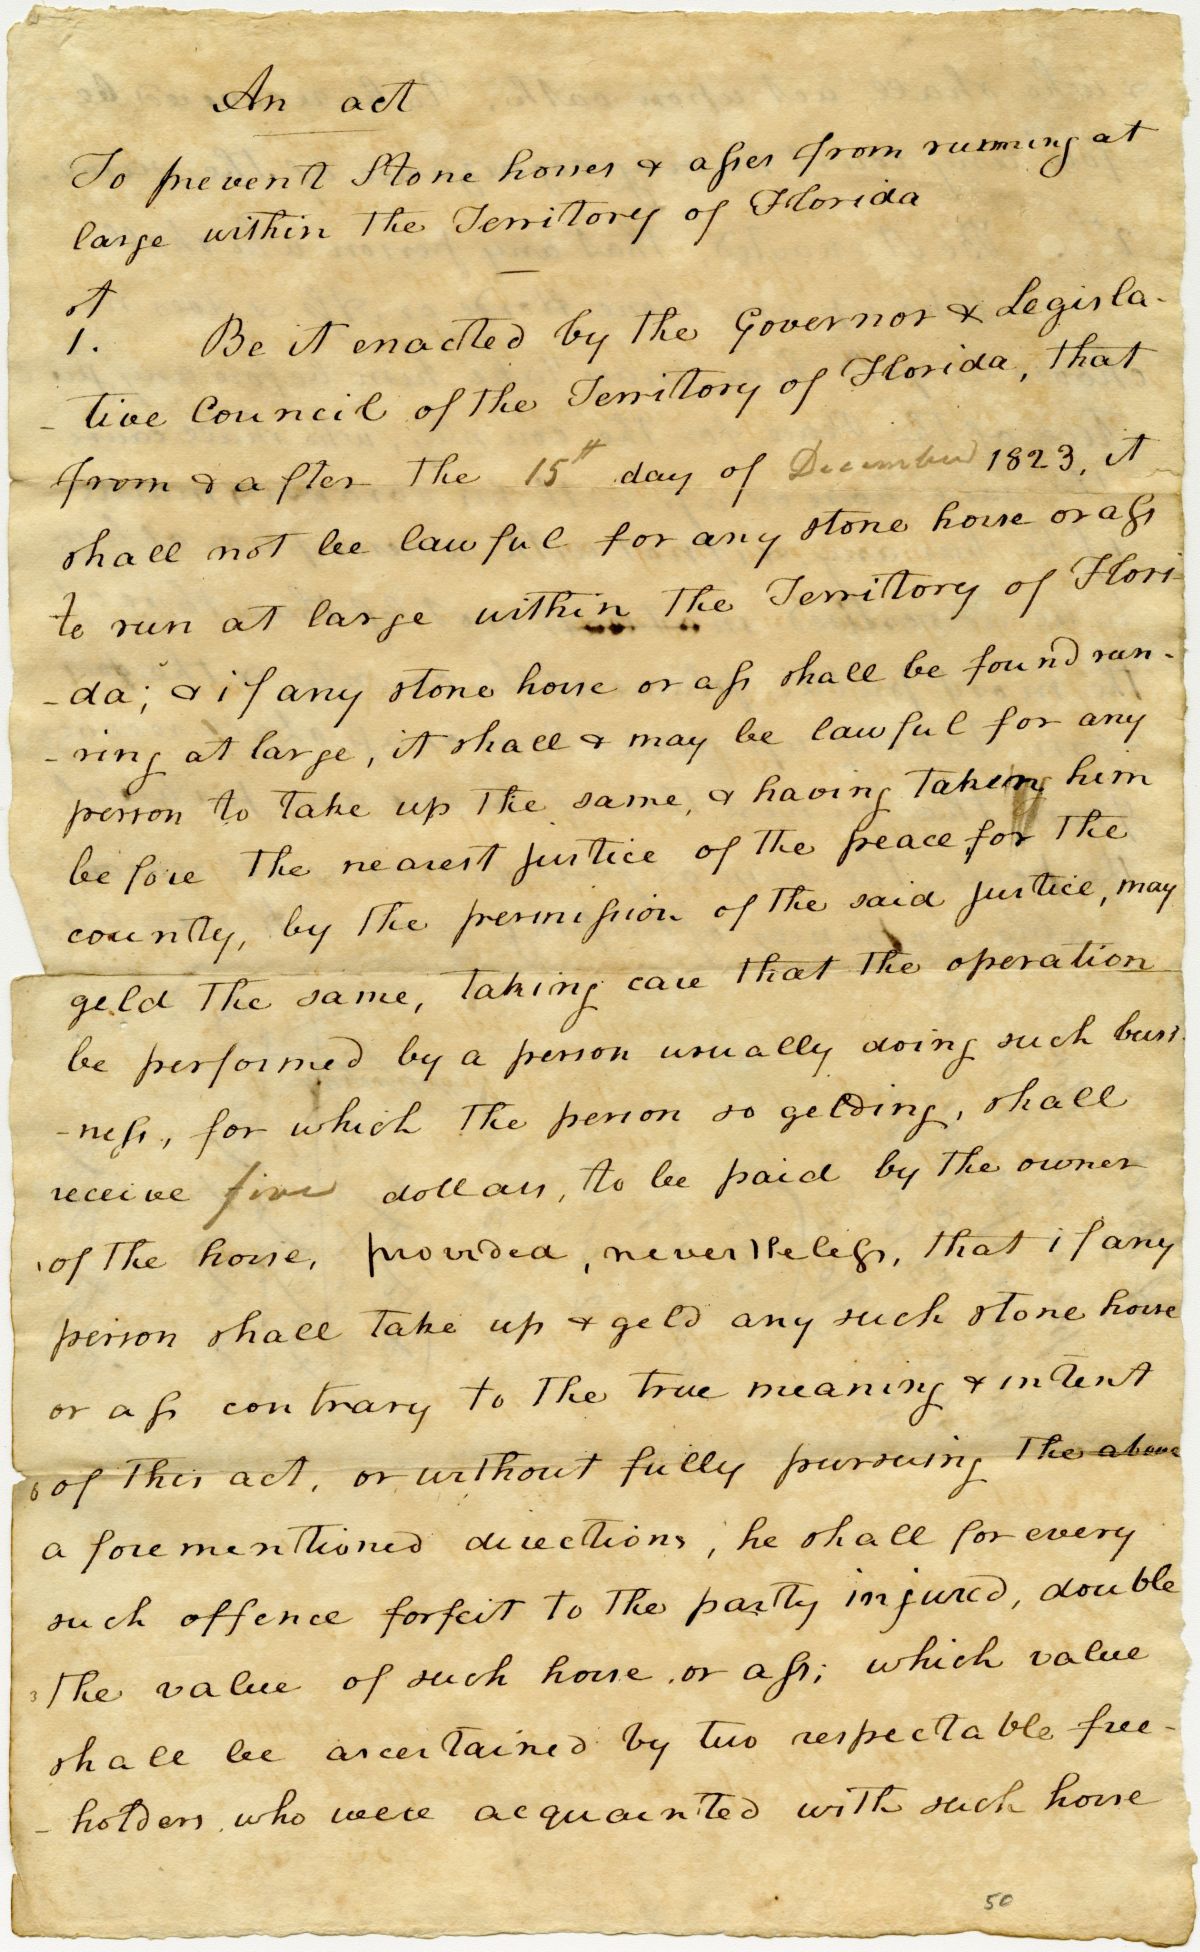 An act
To prevent Stone horses & asses from running at
large within the Territory of Florida
st
1. Be it enacted by the Governor & Legisla-
-tive Council of the Territory of Florida, that
from & after the 15th day of December 1823, it
shall not be lawful for any stone horse or ass
to run at large within the Territory of Flori-
-da; & if any stone horse or ass shall be found run-
-ning at large, it shall & may be lawful for any
person to take up the same, & having taken him
before the nearest justice of the peace for the
county, by the permission of the said justice, may
geld the same, taking care that the operation
be performed by a person usually doing such busi-
-ness, for which the person so gelding, shall
receive five dollars, to be paid by the owner
of the horse, provided, nevertheless, that if any
person shall take up & geld any such stone horse
or ass contrary to the true meaning & intent
of this act, or without fully pursuing the above
aforementioned directions, he shall for every
such offence forfeit to the party injured, double
the value of such horse or ass; which value
shall be ascertained by two respectable free-
-holders who were acquainted with such horse
50